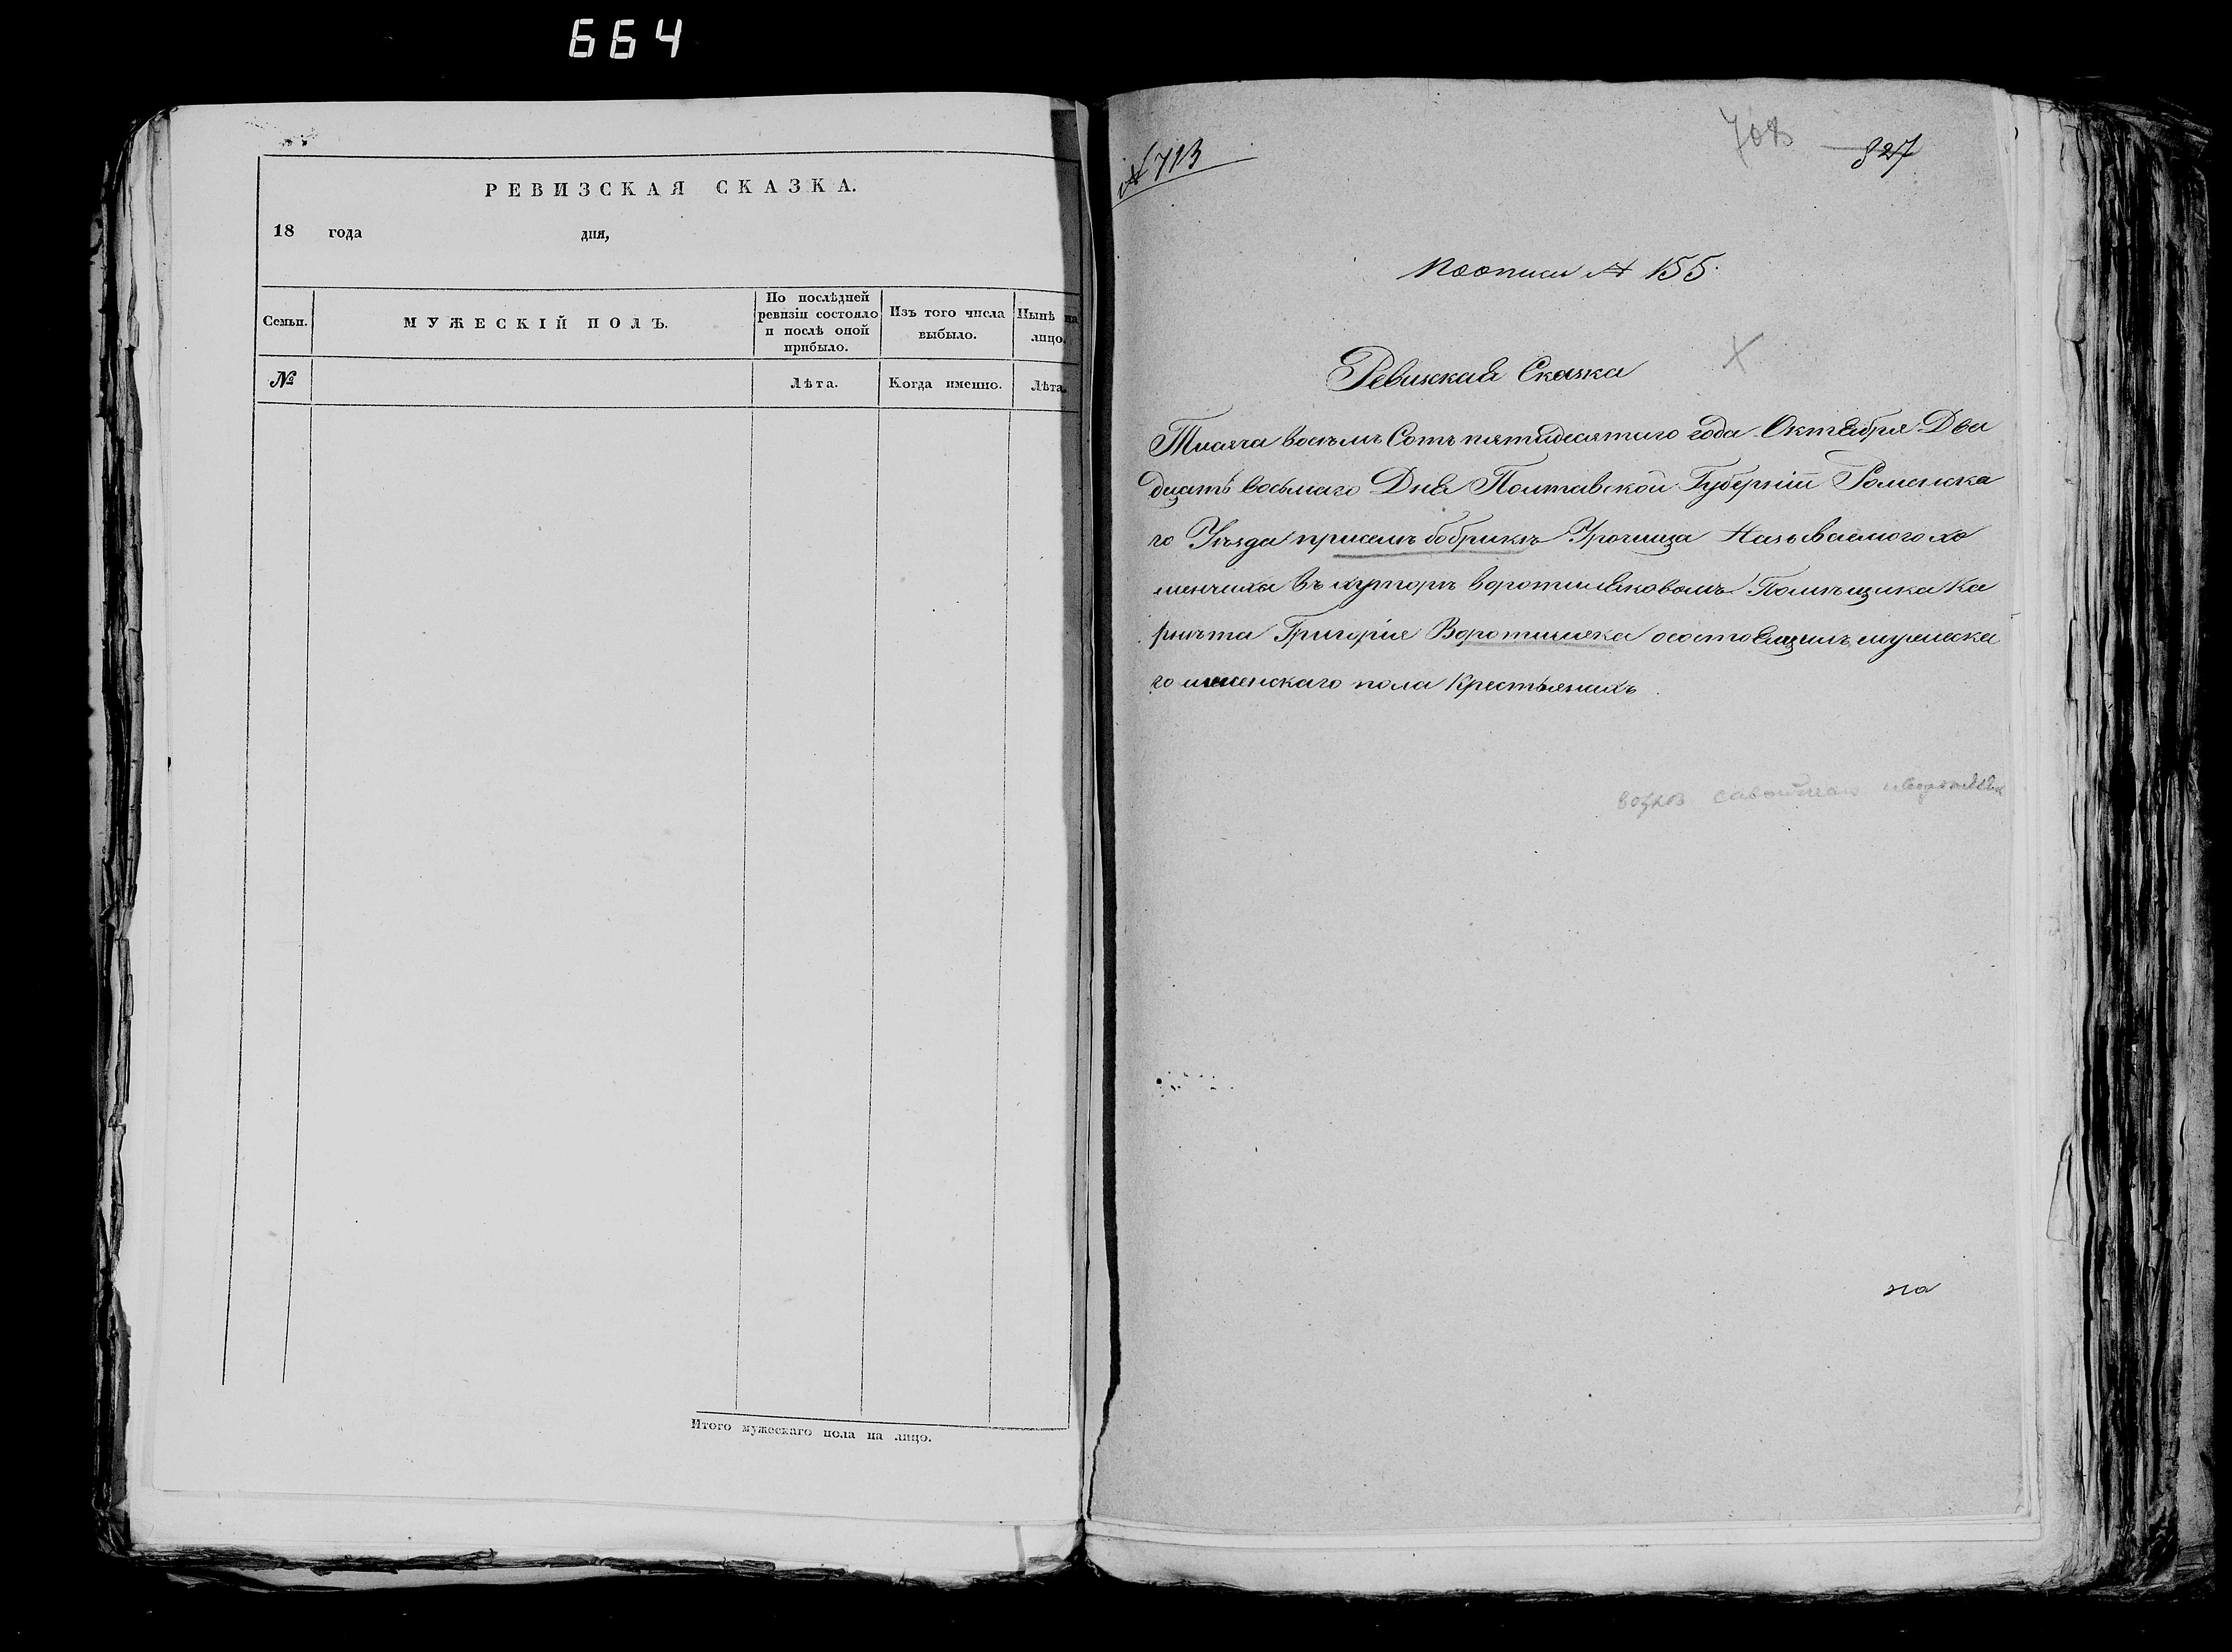 664
РЕВИЗСКАЯ СКАЗКА.
18 года дня,
Семьи.
МУЖЕСКІЙ ПОЛЪ.
По послѣдней ревизіи состояло и послѣ оной прибыло.
Изъ того числа выбыло.
Нынѣ на лицо.
№
Лѣта.
Когда именно.
Лѣта.
Итого мужескаго пола на лицо.
№ 713
708
827
Поописи № 155.
Ревизская Сказка
Тисяча восемъ Сотъ пятидесятаго года Октября Два
дцать восьмаго Дня Полтавской Губерніи Роменска
го Уѣзда приселѣ бобрикѣ Урочища Называемого хо
менчиха Въ хуторѣ воротиляковомъ Помѣщика Ка
рнѣта Григорія Воротиляка осостоящихъ мужеска
го иженскаго пола Крестьянахъ
на